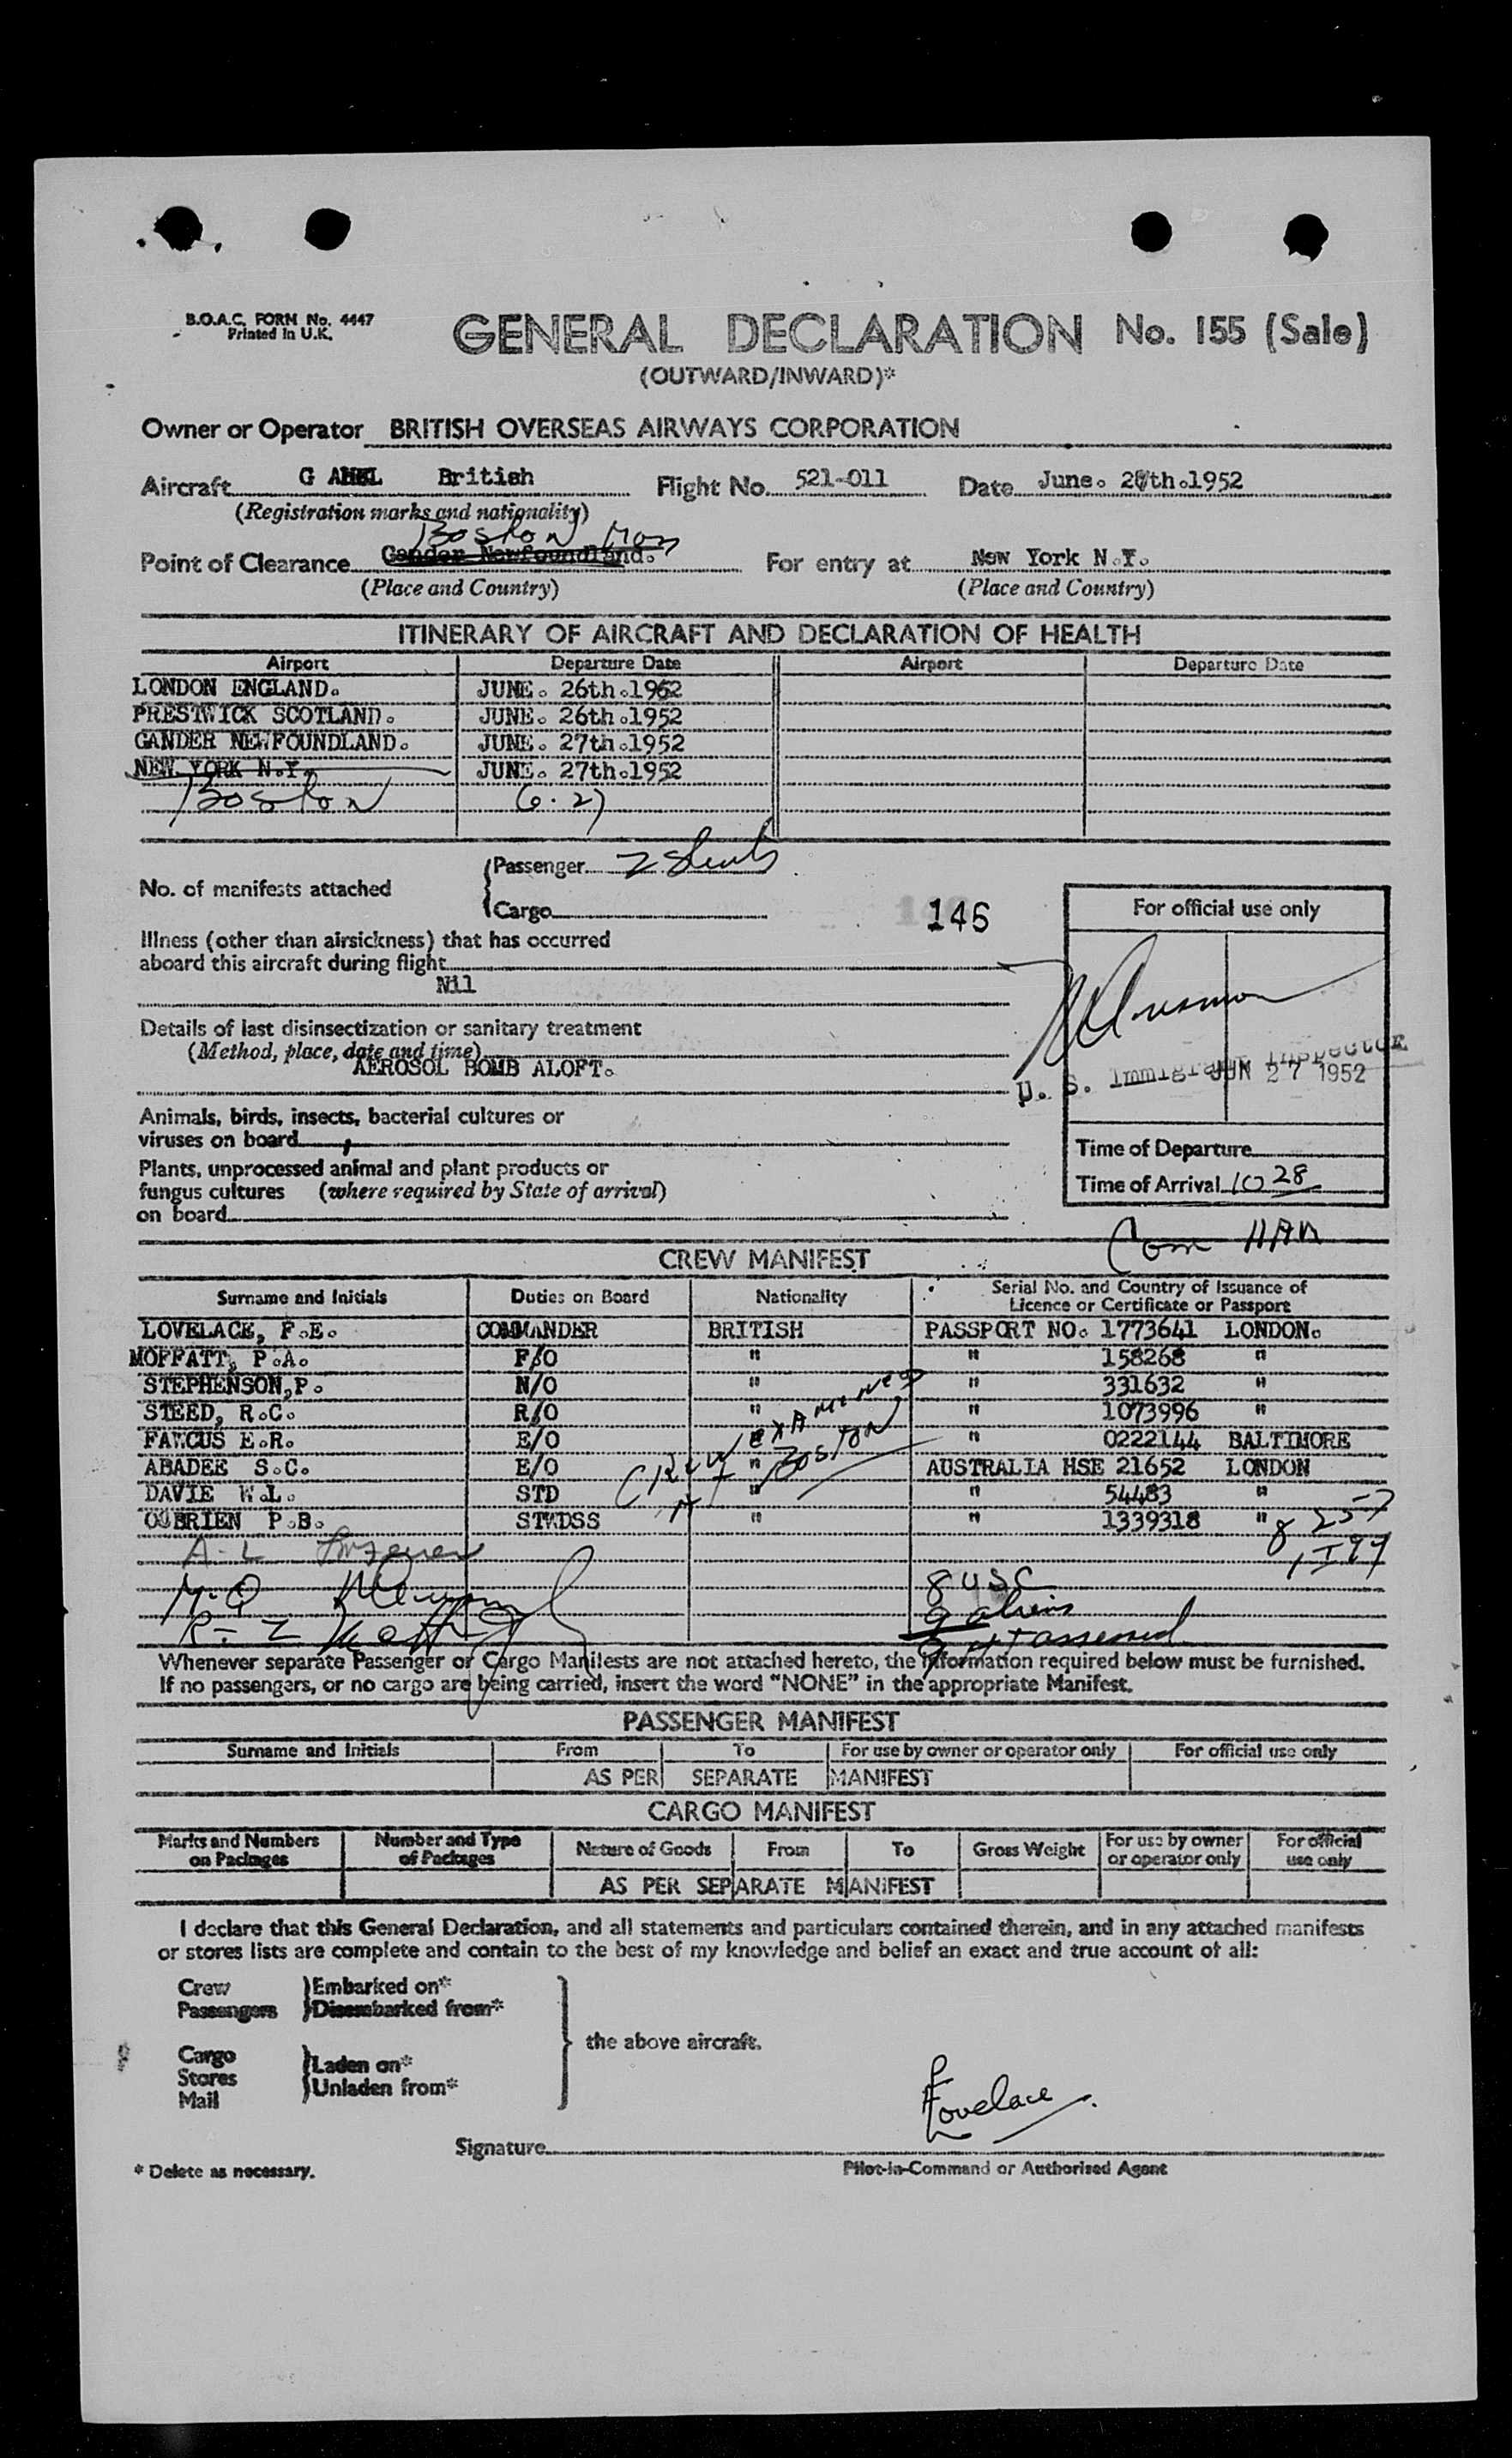 B.O.A.C. FORM No. 4447
Printed in U.K.
GENERAL DECLARATION No. 155 (Sale)
(OUTWARD/INWARD)*
Owner or Operator BRITISH OVERSEAS AIRWAYS CORPORATION
Aircraft G British Flight No. 521-011 Date June. 2 th.1952
(Registration marks and nationality)
Boston
Point of Clearance Gander Newfoundland. For entry at New York N.Y.
(Place and Country) (Place and Country)
ITINERARY OF AIRCRAFT AND DECLARATION OF HEALTH
Airport Departure Date Airport Departure Date
LONDON ENGLAND. JUNE. 26th.1952
PRESTWICK SCOTLAND. JUNE. 26th.1952
GANDER NEWFOUNDLAND. JUNE. 27th.1952
NEW YORK N.Y. JUNE. 27th.1952
Boston 6.27
No. of manifests attached
Passenger 2
Cargo
146
For official use only
Illness (other than airsickness) that has occurred
aboard this aircraft during flight
Nil
Details of last disinsectization or sanitary treatment
(Method, place, date and time)
AEROSOL BOMB ALOFT.
U. S. Immigrant Inspector
JUN 27 1952
Animals, birds, insects, bacterial cultures or
viruses on board
Time of Departure
Plants, unprocessed animal and plant products or
fungus cultures (where required by State of arrival)
on board
Time of Arrival 10 28
Com
CREW MANIFEST
Surname and Initials Duties on Board Nationality Serial No. and Country of Issuance of
Licence or Certificate or Passport
LOVELACE, F.E. COMMANDER BRITISH PASSPORT NO. 1773641 LONDON.
MOFFATT, P.A. F/O " " 158268 "
STEPHENSON,P. N/O " " 331632 "
STEED, R.C. R/O " " 1073996 "
FAWCUS E.R. E/O " 0222144 BALTIMORE
ABADEE S.C. E/O " AUSTRALIA HSE 21652 LONDON
DAVIE W.L. STD " " 54483 "
O'BRIEN P.B. STWDSS " " 1339318 "
CREW EXAMINED
AT BOSTON
A-L
M-Q
R-Z
8 USC
9 aliens
Whenever separate Passenger or Cargo Manifests are not attached hereto, the information required below must be furnished.
If no passengers, or no cargo are being carried, insert the word "NONE" in the appropriate Manifest.
PASSENGER MANIFEST
Surname and Initials From To For use by owner or operator only For official use only
AS PER SEPARATE MANIFEST
CARGO MANIFEST
Marks and Numbers on Packages Number and Type of Packages Nature of Goods From To Gross Weight For use by owner or operator only For official use only
AS PER SEPARATE MANIFEST
I declare that this General Declaration, and all statements and particulars contained therein, and in any attached manifests
or stores lists are complete and contain to the best of my knowledge and belief an exact and true account of all:
Crew Embarked on*
Passengers Disembarked from*
the above aircraft.
Cargo
Stores
Mail
Laden on*
Unladen from*
Lovelace
Signature
* Delete as necessary. Pilot-in-Command or Authorised Agent